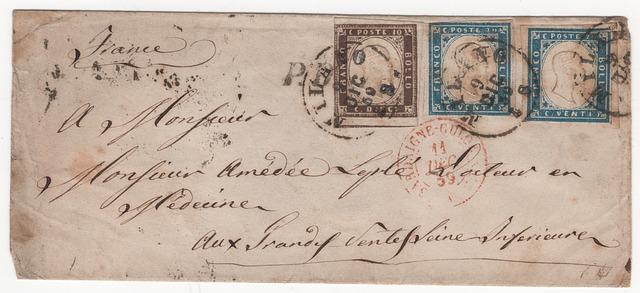 C. POSTE 10
FRANCO
BOLLO
C. POSTE 20
FRANCO
BOLLO
C. VENTI
C. POSTE 20
FRANCO
BOLLO
C. VENTI
France
MILANO
9
DIC
59
11
DEC
59
A Monsieur
Monsieur Amédée Docteur en
Médecine
Aux Grandes Ventes Seine Inferieure